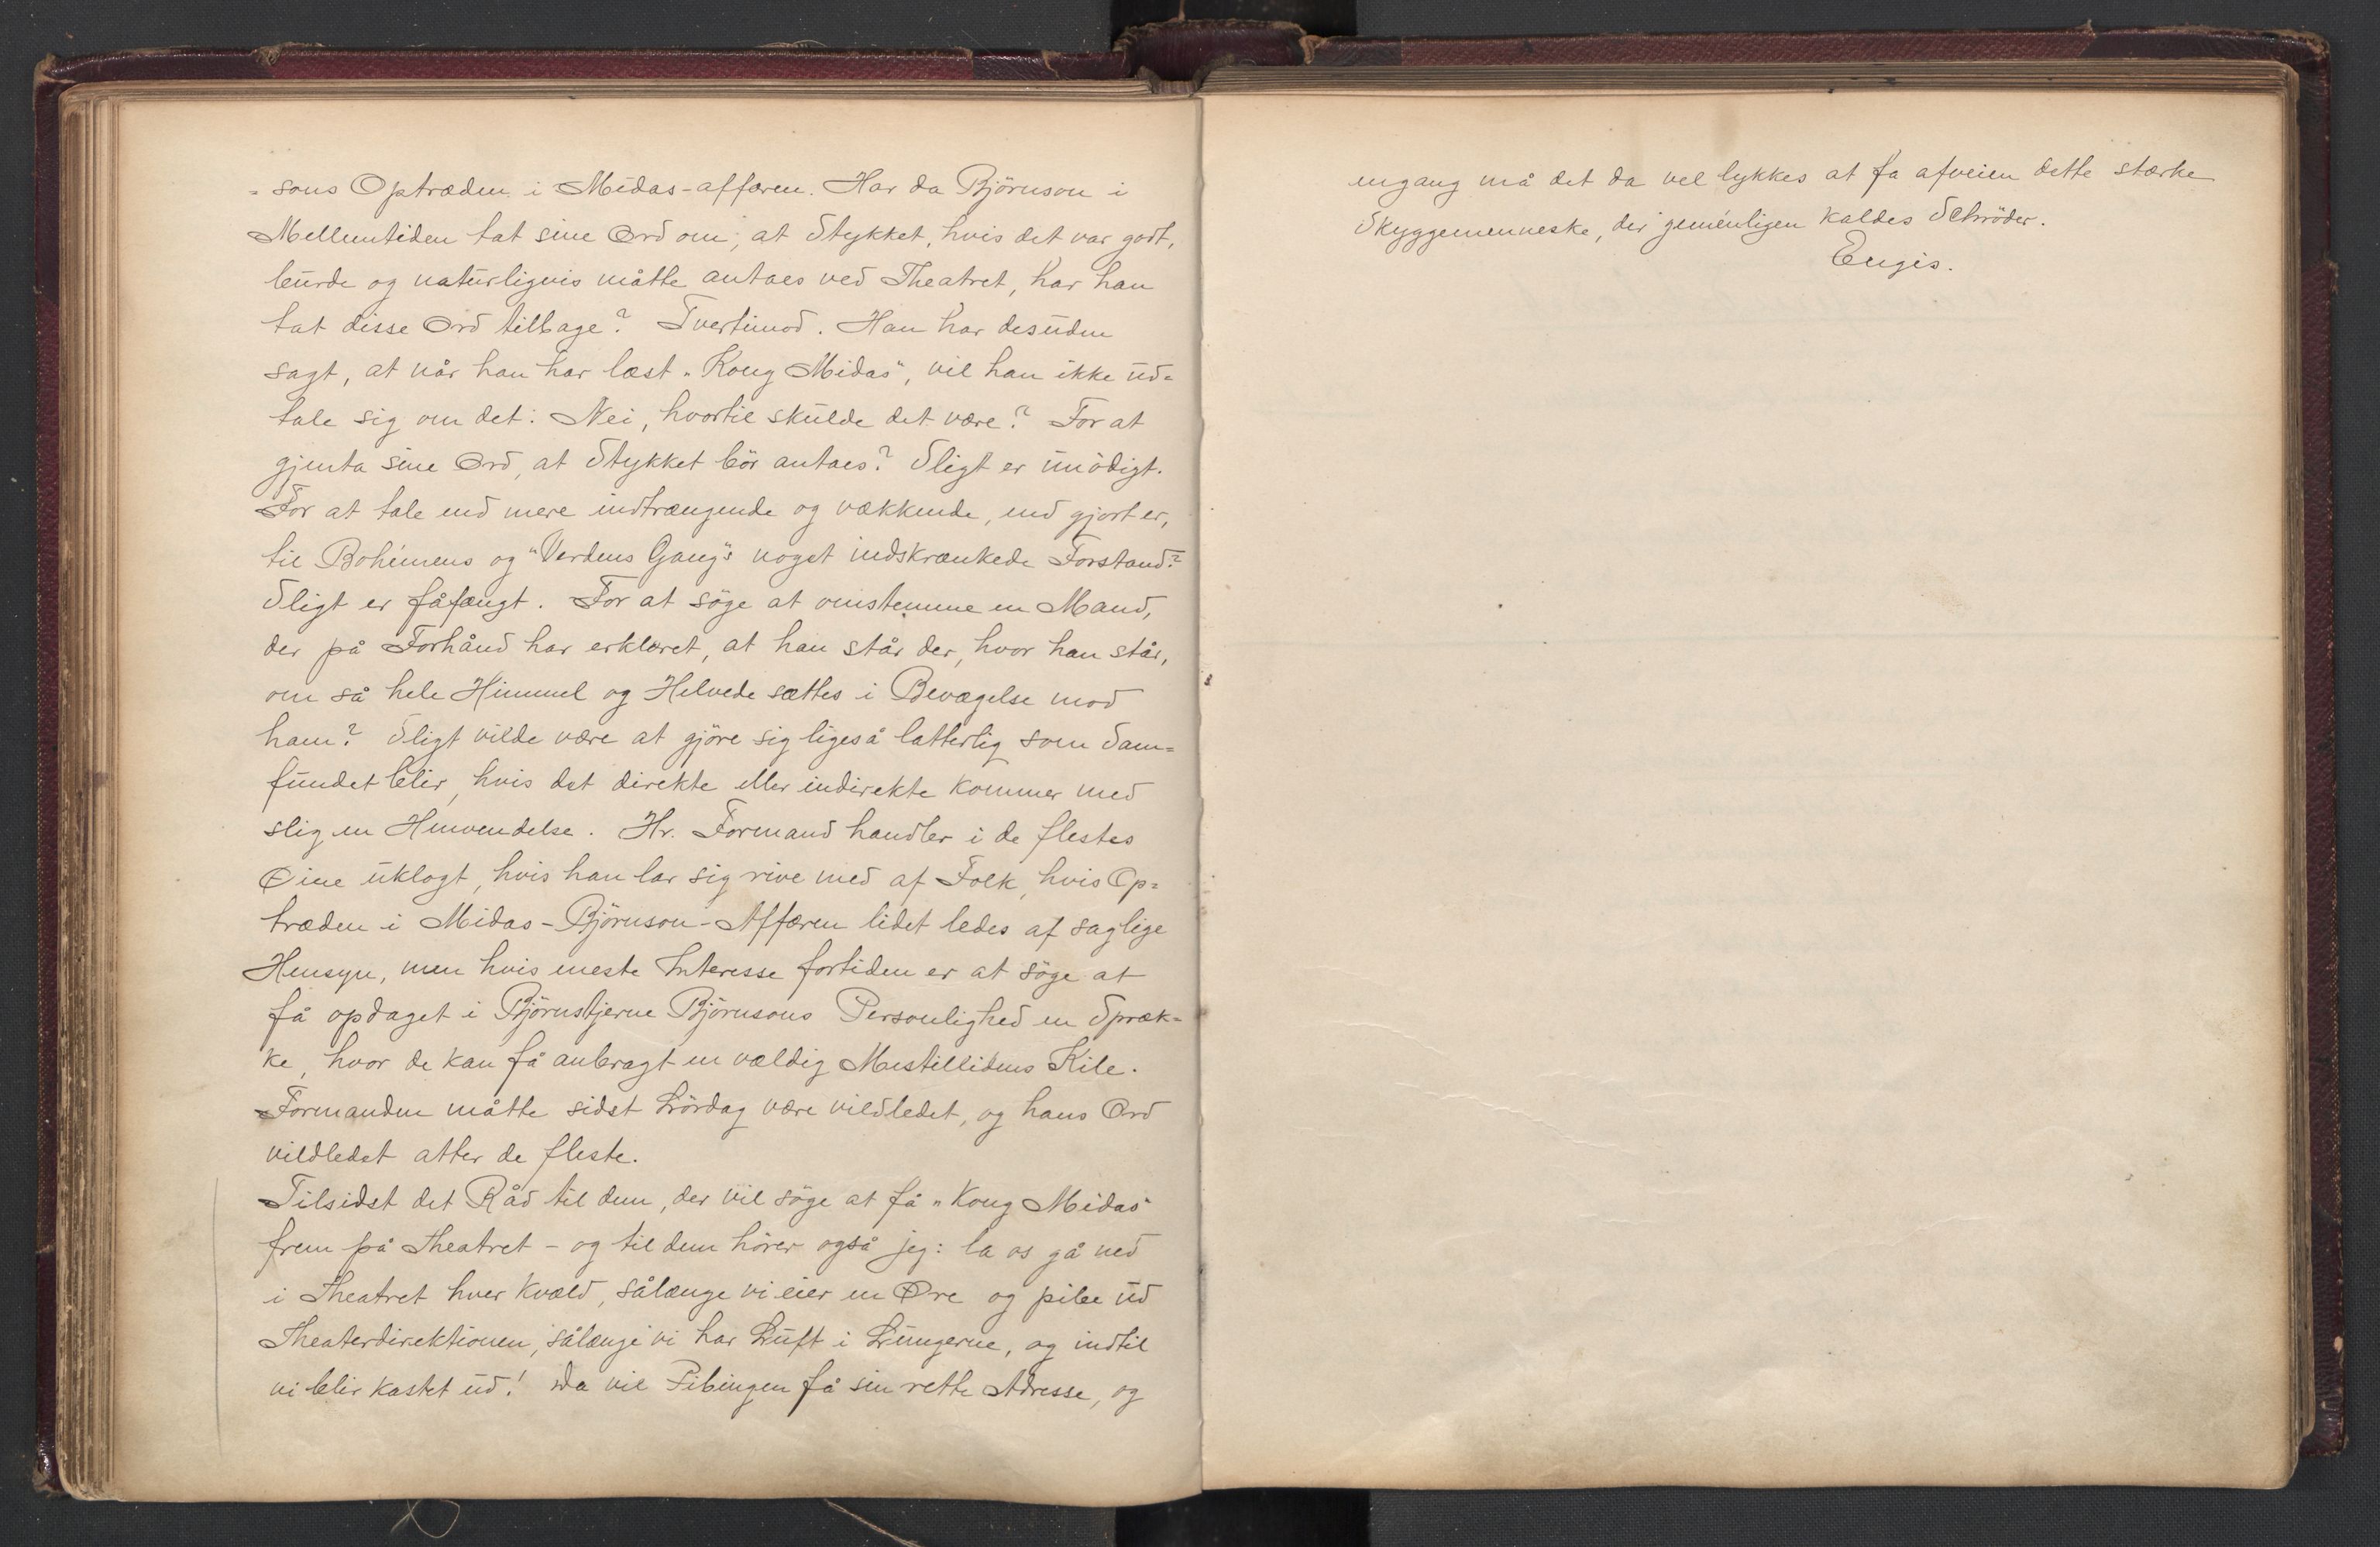 = sons Optræden i Midas-affæren. Har da Björnson i
Mellemtiden tat sine Ord om, at Stykket, hvis det var godt,
burde og naturligvis måtte antaes ved Theatret, har han
tat disse Ord tilbage? Tvertimod. Han har desuden
sagt, at når han har læst „Kong Midas", vil han ikke ud=
tale sig om det: Nei, hvortil skulde det være? For at
gjenta sine Ord, at Stykket bör antaes? Sligt er unödigt.
For at tale end mere indtrængende og vækkende, end gjort er,
til Bohêmens og "Verdens Gang"s noget indskrænkede Forstand?
Sligt er fåfængt. For at söge at omstemme en Mand,
der på Forhånd har erklæret, at han står der, hvor han står,
om så hele Himmel og Helvede sættes i Bevægelse mod
ham? Sligt vilde være at gjöre sig ligeså latterlig som Sam=
fundet blir, hvis det direkte eller indirekte kommer med
slig en Henvendelse. Hr. Formand handler i de flestes
Øine uklogt, hvis han lar sig rive med af Folk, hvis Op=
træden i Midas-Björnson-Affæren lidet ledes af saglige
Hensyn, men hvis meste Interesse fortiden er at söge at
få opdaget i Björnstjerne Björnsons Personlighed en Spræk=
ke, hvor de kan få anbragt en vældig Mistillidens Kile.
Formanden måtte sidst Lördag være vildledet, og hans Ord
vildledet atter de fleste.
Tilsidst det Råd til dem, der vil söge at få „Kong Midas"
frem på Theatret - og til dem hörer også jeg: la os gå ned
i Theatret hver Kvæld, sålænge vi eier en Øre og pibe ud
Theaterdirektionen, sålænge vi har Luft i Lungerne, og indtil
vi blir kastet ud! Da vil Pibingen få sin rette Adresse, og
engang må det da vel lykkes at få afveien dette stærke
Skyggemenneske, der gemenligen kaldes Schröder.
Engis.